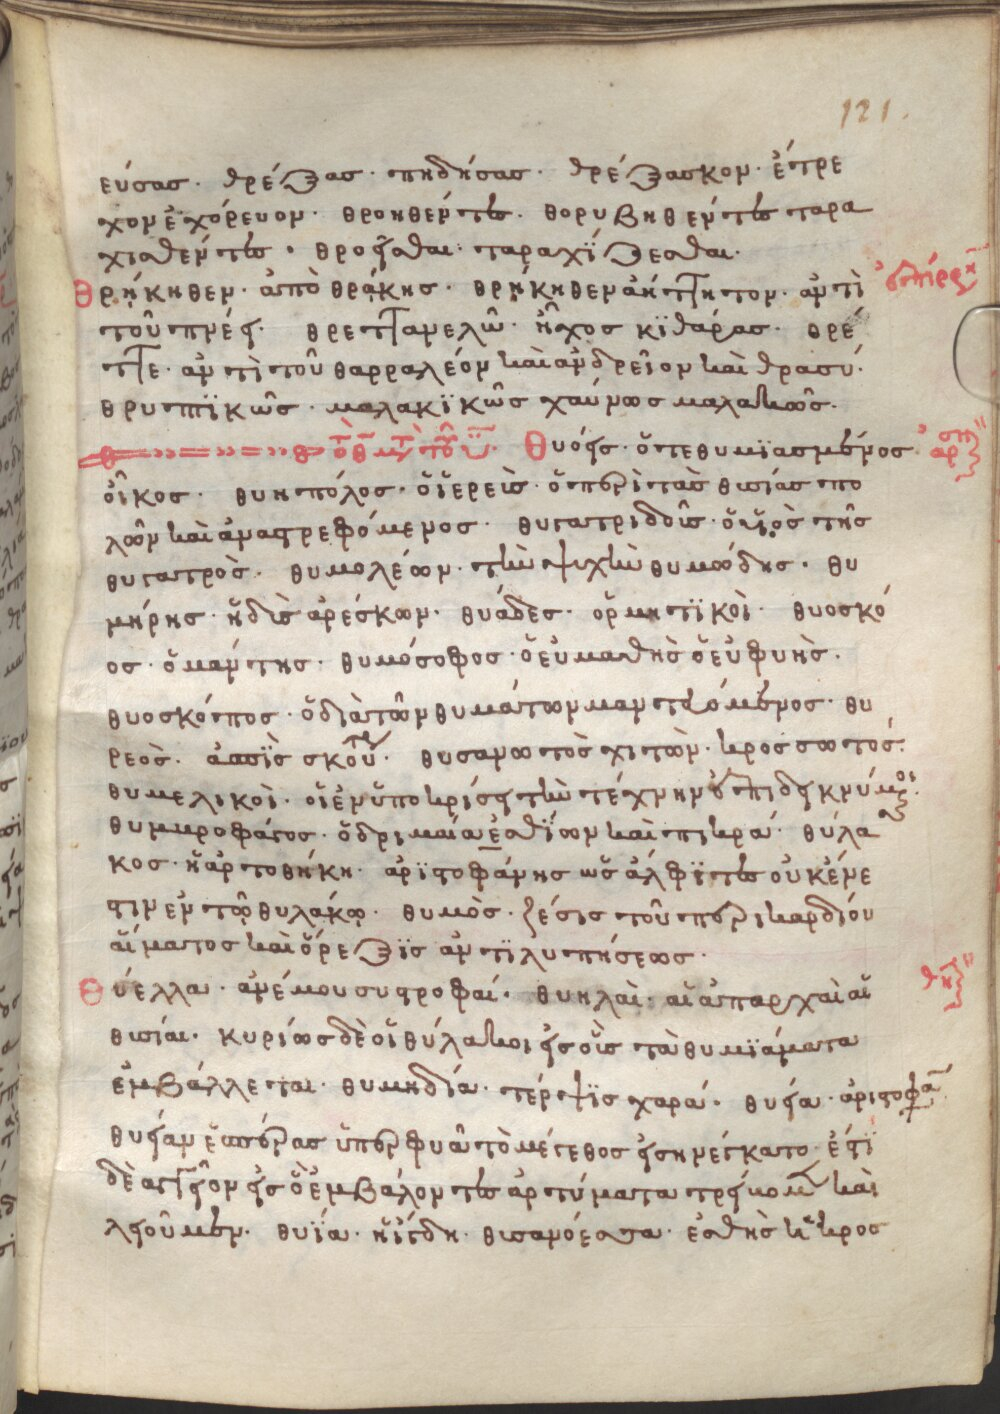 121.
εύσας. θρέξας. πηδήσας. θρέξασκον. ἔτρε
χον ἐχόρευον. θροηθέντες. θορυβηθέντες ταρα
χθέντες. θροεῖσθαι. ταραχίζεσθαι.
Θρῄκηθεν. ἀπὸ θρᾴκης. θρῄκηθεν ἄητον. ἀντὶ
τοῦ πνέει. θρεττανελῶ. ἦχος κϊθάρας. θρέ
ττε. ἀντὶ τοῦ θαρραλέον καὶ ἀνδρεῖον καὶ θρασύ.
θρυπϊκῶς. μαλακϊκῶς χαύνως μαλακῶς.
τὸ θ μετὰ τοῦ ϋ. Θυόεις. ὅτε θυμϊασμένος. ἀρση
οἶκος. θυηπόλος. ὁ ἱερεὺς. ὁ περὶ τὰς θυσίας πο
λῶν καὶ ἀναστρεφόμενος. θυγατριδοῦς. ὁ υἱὸς τῆς
θυγατρὸς. θυμολέων. τὴν ψυχὴν θυμώδης. θυ
μήρης. ἡδὺς ἀρέσκων. θυάδες. ὁρμητϊκοὶ. θυοσκό
ος. ὁ μάντης. θυμόσοφος. ὁ εὐμαθὴς ὁ εὐφυὴς.
θυοσκόπος. ὁ διὰ τῶν θυμάτων μαντευόμενος. θυ
ρεὸς. ἀσπὶς σκοῦτ. θυσανωτὸς χιτὼν. κροσσωτός.
θυμελικοὶ. οἱ ἐν ὑποκρίσει τὴν τέχνην ἐπιδεικνύμενοι.
θυμβροφάγος. ὁ δριμαία ἐσθίων καὶ πικρά. θύλα
κος. ἡ ἀρτοθήκη. ἀρϊστοφάνης ὡς ἀλφϊτες οὐκ ἔνε
στιν ἐν τῷ θυλάκῳ. θυμὸς. ζέσις τοῦ περικαρδίου
αἵματος καὶ ὄρεξις ἀντϊλυπήσεως.
Θύελλα. ἀνέμου συστροφαί. θυηλαὶ. αἱ ἀπαρχαὶ αἱ θη
θυσίαι. κυρίως δὲ οἱ θύλακοι εἰς οὓς τὰ θυμϊάματα
ἐμβάλλεται. θυμηδία. τέρψϊς χαρά. θυεία. ἀριστοφα
θυείαν ἑσπέρας ὑπερφυᾶ τὸ μέγεθος εἰσηνέγκατο. ἔστϊ
δὲ ἀγγεῖον εἰς ὃ ἐμβάλοντες ἀρτύματα τρίβομεν καὶ
λειοῦμεν. θυϊα. ἡ ἴγδη. θυσανόεσσα. ἐσθὴς κροσ